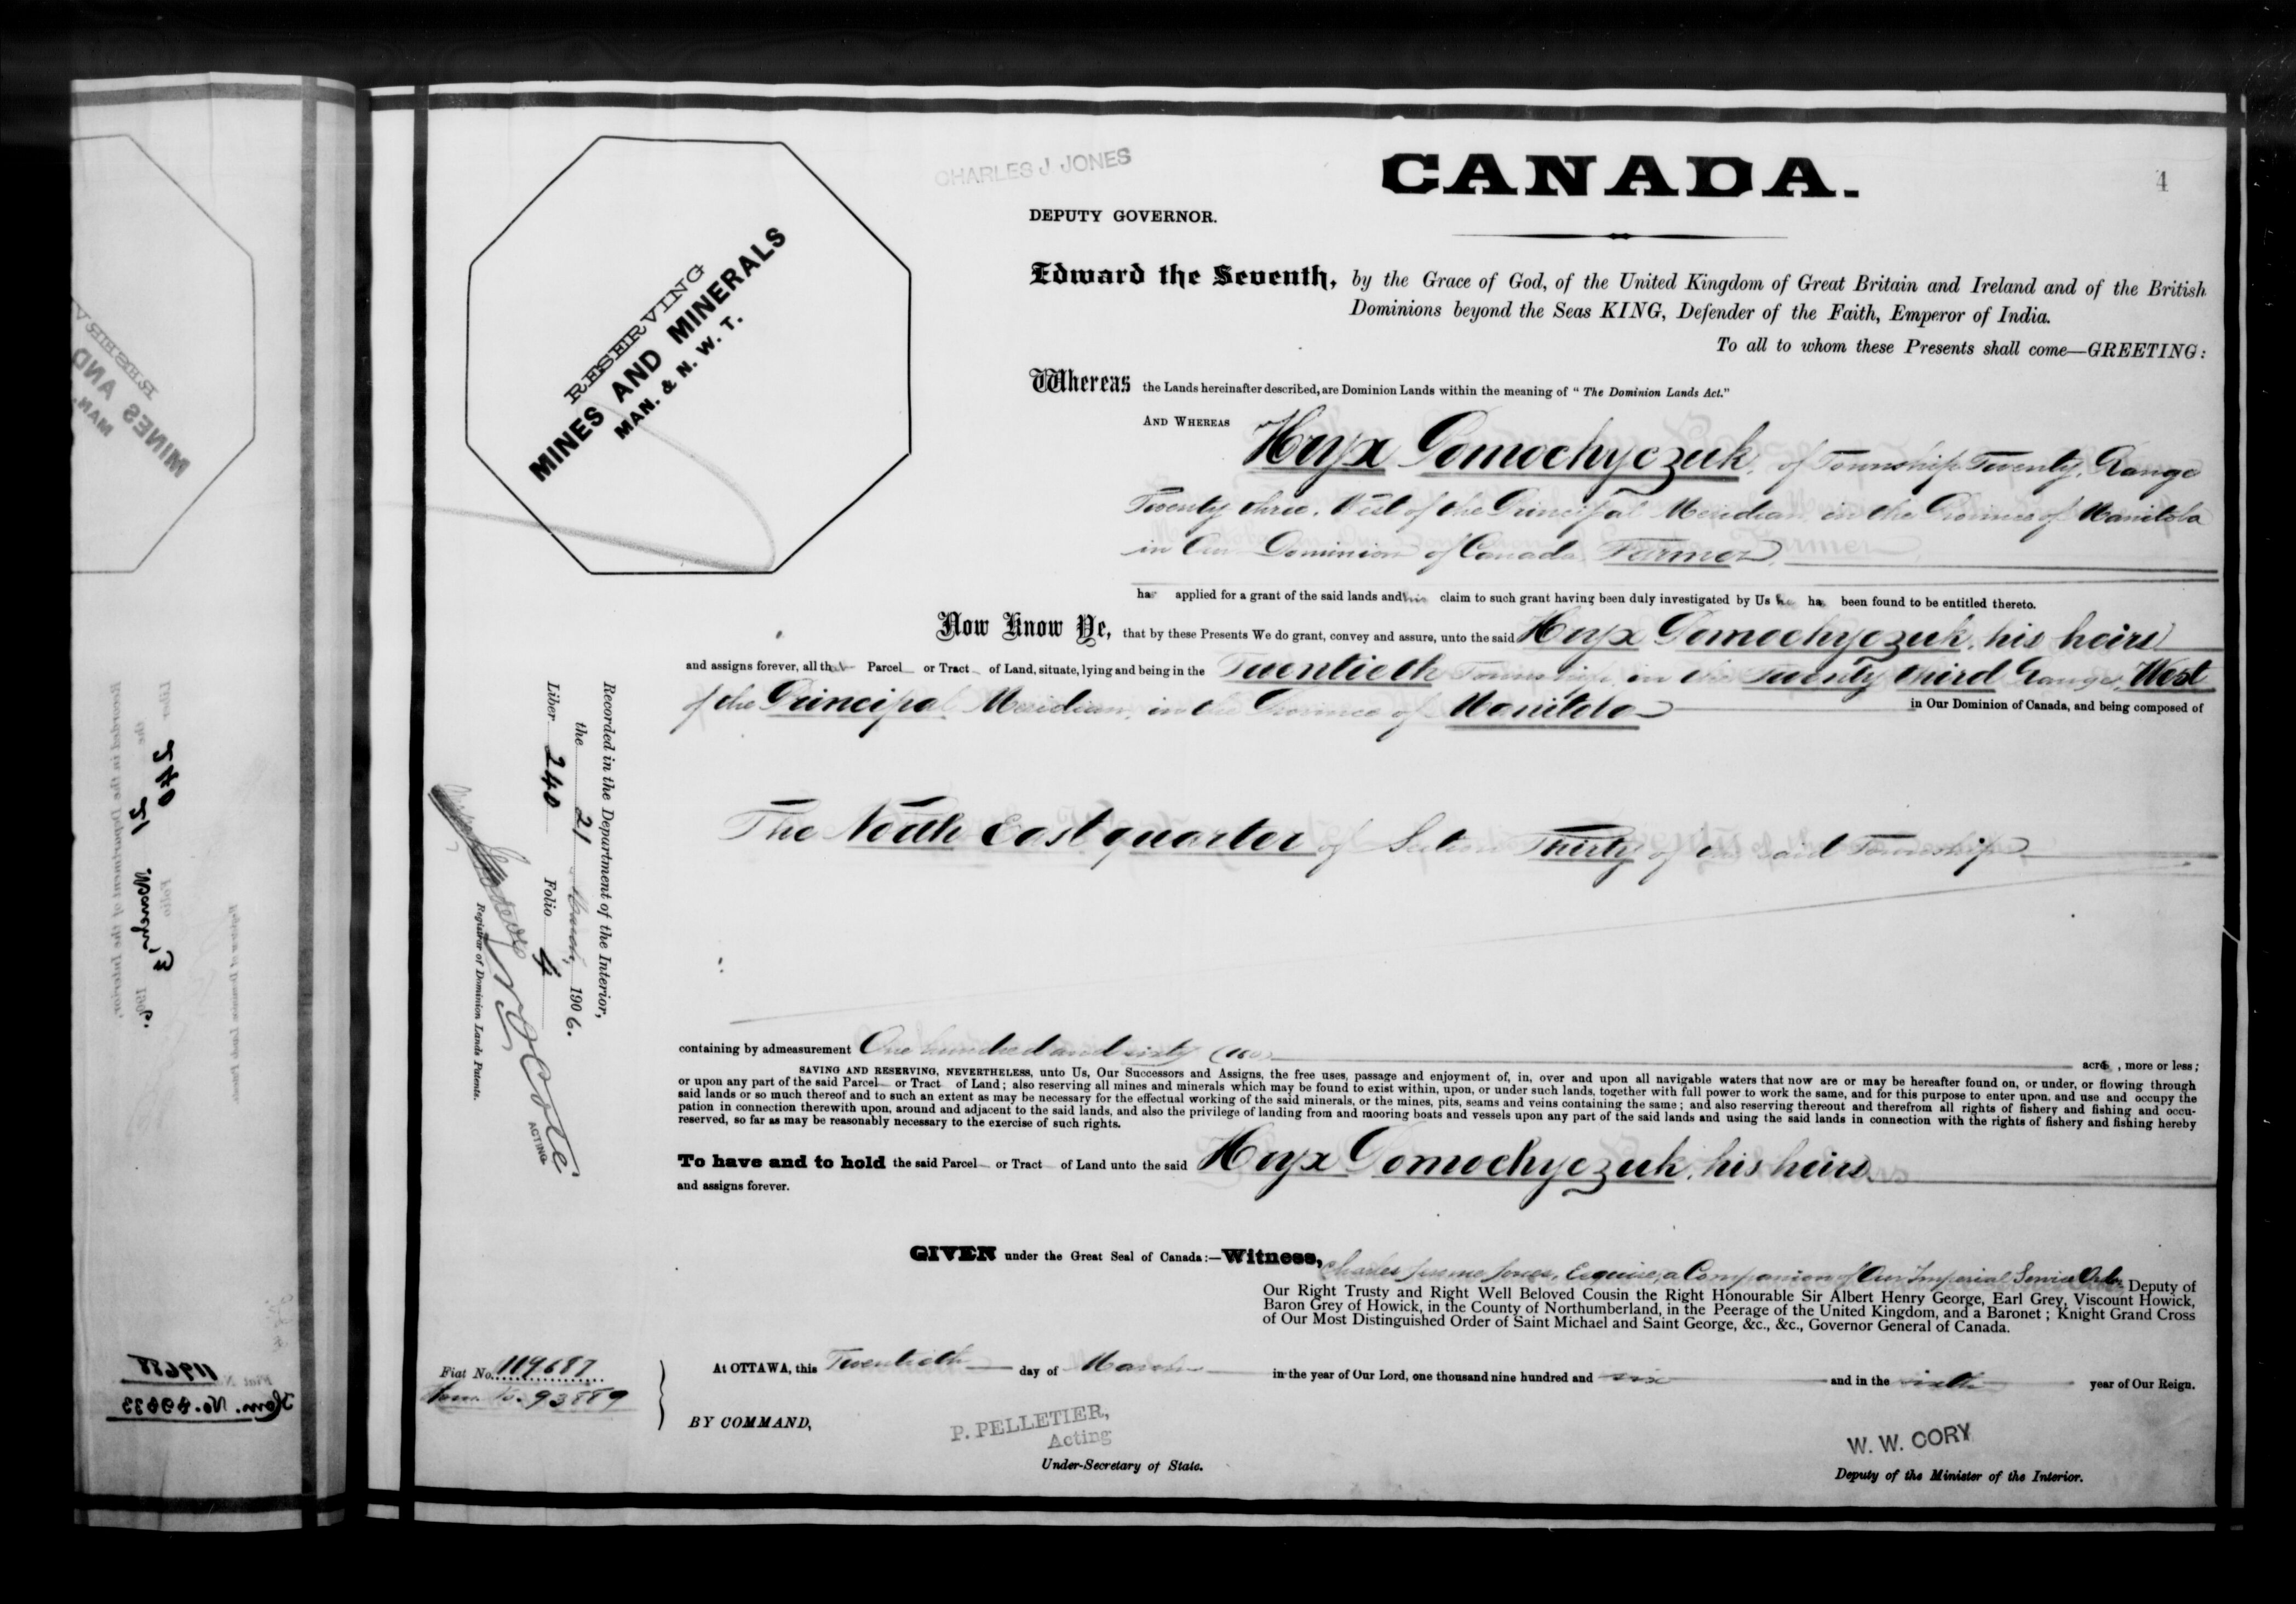 CHARLES J JONES
CANADA.
4
DEPUTY GOVERNOR.
RESERVING
MINES AND MINERALS
MAN. & N. W. T.
Edward the Seventh, by the Grace of God, of the United Kingdom of Great Britain and Ireland and of the British
Dominions beyond the Seas KING, Defender of the Faith, Emperor of India.
To all to whom these Presents shall come—GREETING:
Whereas the Lands hereinafter described, are Dominion Lands within the meaning of "The Dominion Lands Act."
AND WHEREAS Hryx Gomochyczuk, of Township Twenty, Range
Twenty three, West of the Principal Meridian, in the Province of Manitoba
in Our Dominion of Canada, Farmer,
has applied for a grant of the said lands and his claim to such grant having been duly investigated by Us he has been found to be entitled thereto.
Now Know Ye, that by these Presents We do grant, convey and assure, unto the said Hryx Gomochyczuk, his heirs
and assigns forever, all that Parcel or Tract of Land, situate, lying and being in the Twentieth Township, in the Twenty third Range, West
of the Principal Meridian, in the Province of Manitoba in Our Dominion of Canada, and being composed of
The North East quarter of Section Thirty of the said Township
Recorded in the Department of the Interior,
the 21 March, 1906.
Liber 240 Folio 4
N O Coté
ACTING
Registrar of Dominion Lands Patents.
containing by admeasurement One hundred and sixty (160) acres, more or less;
SAVING AND RESERVING, NEVERTHELESS, unto Us, Our Successors and Assigns, the free uses, passage and enjoyment of, in, over and upon all navigable waters that now are or may be hereafter found on, or under, or flowing through
or upon any part of the said Parcel or Tract of Land; also reserving all mines and minerals which may be found to exist within, upon, or under such lands, together with full power to work the same, and for this purpose to enter upon, and use and occupy the
said lands or so much thereof and to such an extent as may be necessary for the effectual working of the said minerals, or the mines, pits, seams and veins containing the same; and also reserving thereout and therefrom all rights of fishery and fishing and occu-
pation in connection therewith upon, around and adjacent to the said lands, and also the privilege of landing from and mooring boats and vessels upon any part of the said lands and using the said lands in connection with the rights of fishery and fishing hereby
reserved, so far as may be reasonably necessary to the exercise of such rights.
To have and to hold the said Parcel or Tract of Land unto the said Hryx Gomochyczuk, his heirs
and assigns forever.
GIVEN under the Great Seal of Canada:—Witness, Charles Jerome Jones, Esquire, a Companion of Our Imperial Service Order, Deputy of
Our Right Trusty and Right Well Beloved Cousin the Right Honourable Sir Albert Henry George, Earl Grey, Viscount Howick,
Baron Grey of Howick, in the County of Northumberland, in the Peerage of the United Kingdom, and a Baronet; Knight Grand Cross
of Our Most Distinguished Order of Saint Michael and Saint George, &c., &c., Governor General of Canada.
Fiat No. 119687
Hom. No. 93889
At OTTAWA, this Twentieth day of March in the year of Our Lord, one thousand nine hundred and six and in the sixth year of Our Reign.
BY COMMAND,
P. PELLETIER,
Acting
Under-Secretary of State.
W. W. CORY
Deputy of the Minister of the Interior.